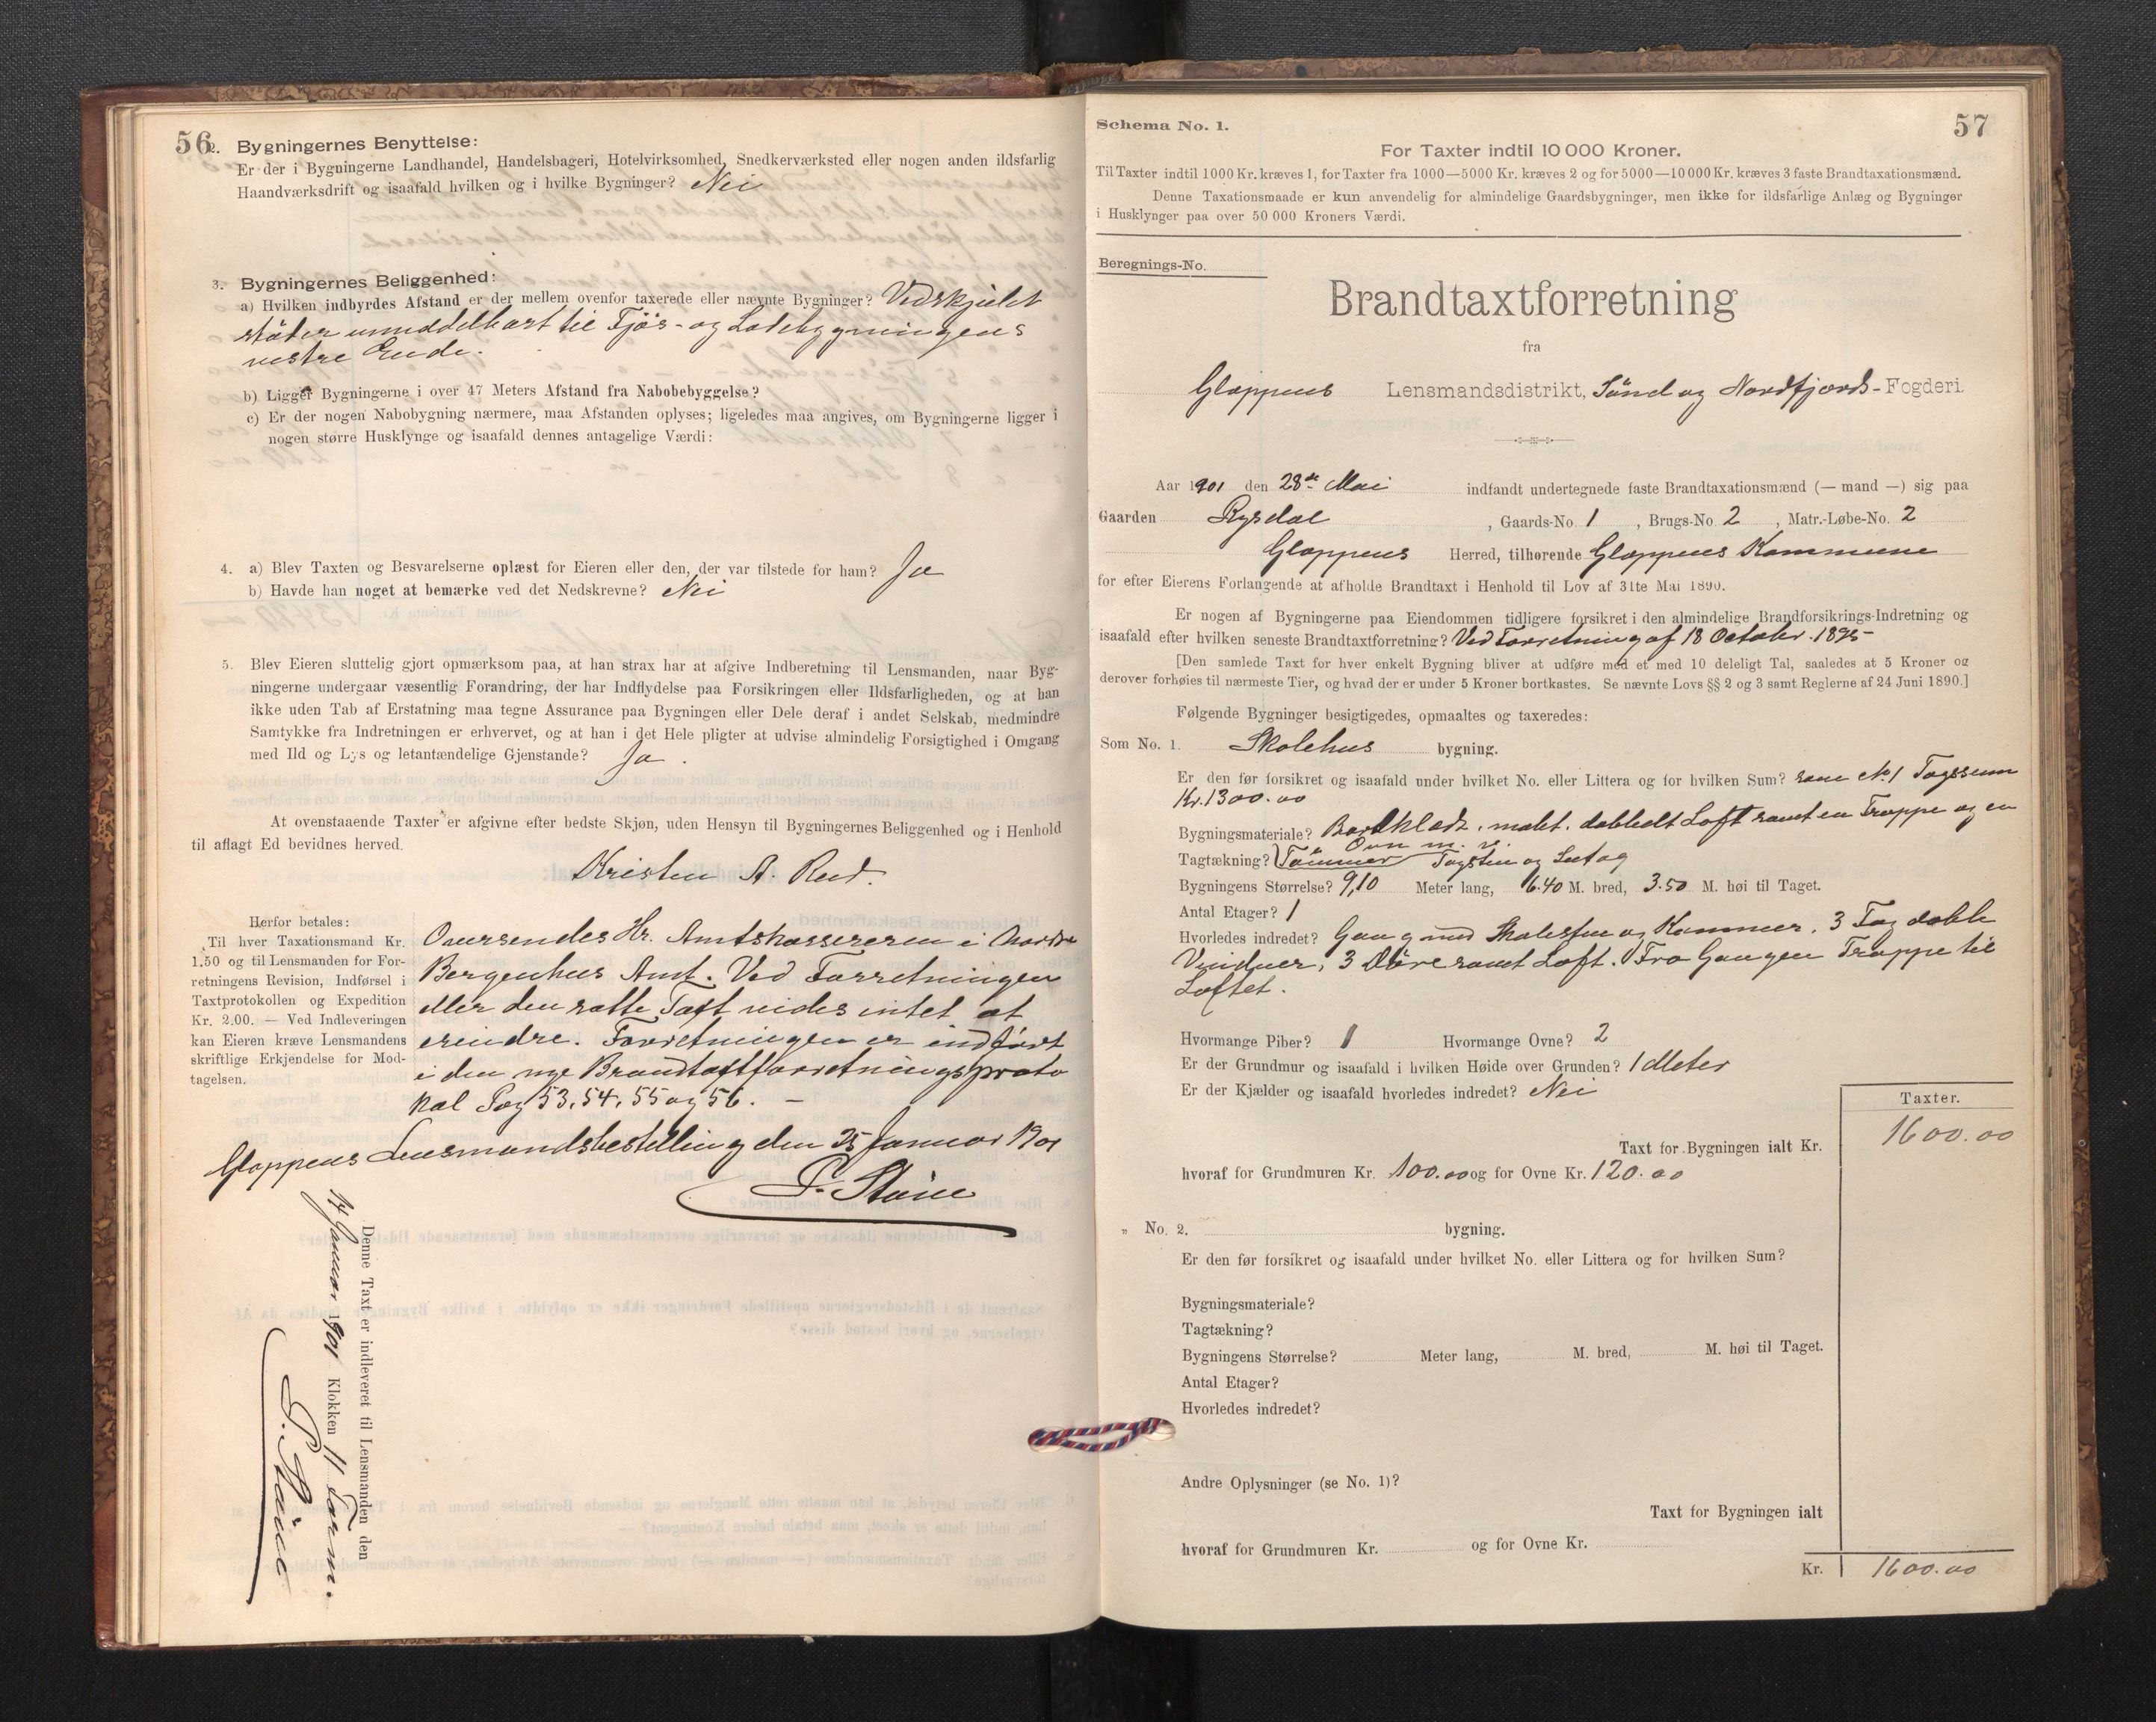 56
2. Bygningernes Benyttelse:
Er der i Bygningerne Landhandel, Handelsbageri, Hotelvirksomhed, Snedkerværksted eller nogen anden ildsfarlig
Haandværksdrift og isaafald hvilken og i hvilke Bygninger? Nei
3. Bygningernes Beliggenhed:
a) Hvilken indbyrdes Afstand er der mellem ovenfor taxerede eller nævnte Bygninger? Vedskjulet
støder umiddelbart til Fjøs- og Ladebygningens
vestre Ende.
b) Ligger Bygningerne i over 47 Meters Afstand fra Nabobebyggelse?
c) Er der nogen Nabobygning nærmere, maa Afstanden oplyses; ligeledes maa angives, om Bygningerne ligger i
nogen større Husklynge og isaafald dennes antagelige Værdi:
4. a) Blev Taxten og Besvarelserne oplæst for Eieren eller den, der var tilstede for ham? Ja
b) Havde han noget at bemærke ved det Nedskrevne? Nei
5. Blev Eieren sluttelig gjort opmærksom paa, at han strax har at afgive Indberetning til Lensmanden, naar Byg-
ningerne undergaar væsentlig Forandring, der har Indflydelse paa Forsikringen eller Ildsfarligheden, og at han
ikke uden Tab af Erstatning maa tegne Assurance paa Bygningen eller Dele deraf i andet Selskab, medmindre
Samtykke fra Indretningen er erhvervet, og at han i det Hele pligter at udvise almindelig Forsigtighed i Omgang
med Ild og Lys og letantændelige Gjenstande? Ja.
At ovenstaaende Taxter er afgivne efter bedste Skjøn, uden Hensyn til Bygningernes Beliggenhed og i Henhold
til aflagt Ed bevidnes herved.
Kristen A. Reed.
Herfor betales:
Til hver Taxationsmand Kr.
1.50 og til Lensmanden for For-
retningens Revision, Indførsel i
Taxtprotokollen og Expedition
Kr. 2.00. — Ved Indleveringen
kan Eieren kræve Lensmandens
skriftlige Erkjendelse for Mod-
tagelsen.
Oversendes Hr. Amtskassereren i Nordre
Bergenhus Amt. Ved Forretningen
eller den satte Taxt vides intet at
erindre. Forretningen er indført
i den nye Brandtaxtforretningsproto
kol Pag 53, 54, 55 og 56. —
Gloppens Lensmandsbestilling den 25 Januar 1901
Denne Taxt er indleveret til Lensmanden den
Januar 1901 Klokken 11 Form.
Schema No. 1.
57
For Taxter indtil 10 000 Kroner.
Til Taxter indtil 1000 Kr. kræves 1, for Taxter fra 1000—5000 Kr. kræves 2 og for 5000—10 000 Kr. kræves 3 faste Brandtaxationsmænd.
Denne Taxationsmaade er kun anvendelig for almindelige Gaardsbygninger, men ikke for ildsfarlige Anlæg og Bygninger
i Husklynger paa over 50 000 Kroners Værdi.
Beregnings-No.
Brandtaxtforretning
fra
Gloppens Lensmandsdistrikt, Sønd og Nordfjords-Fogderi
Aar 1901 den 28de Mai indfandt undertegnede faste Brandtaxationsmænd (— mand —) sig paa
Gaarden Rysdal, Gaards-No. 1, Brugs-No. 2, Matr.-Løbe-No. 2
Gloppens Herred, tilhørende Gloppens Kommune
for efter Eierens Forlangende at afholde Brandtaxt i Henhold til Lov af 31te Mai 1890.
Er nogen af Bygningerne paa Eiendommen tidligere forsikret i den almindelige Brandforsikrings-Indretning og
isaafald efter hvilken seneste Brandtaxtforretning? Ved Forretning af 18 October 1895
[Den samlede Taxt for hver enkelt Bygning bliver at udføre med et med 10 deleligt Tal, saaledes at 5 Kroner og
derover forhøies til nærmeste Tier, og hvad der er under 5 Kroner bortkastes. Se nævnte Lovs §§ 2 og 3 samt Reglerne af 24 Juni 1890.]
Følgende Bygninger besigtigedes, opmaaltes og taxeredes:
Som No. 1. Skolehus bygning.
Er den før forsikret og isaafald under hvilket No. eller Littera og for hvilken Sum? som No 1 Tagssum
Kr. 1300.00
Bygningsmateriale? Bordklædt, malet, dobbelt Loft samt en Trappe og en
Ovn m. v.
Tagtækning? Tømmer Tagsten og Lutag
Bygningens Størrelse? 9,10 Meter lang, 6.40 M. bred, 3.50 M. høi til Taget.
Antal Etager? 1
Hvorledes indredet? Gang med Skolestue og Kammer, 3 Fag doble
Vinduer, 3 Døre samt Loft. Fra Gangen Trappe til
Loftet.
Hvormange Piber? 1 Hvormange Ovne? 2
Er der Grundmur og isaafald i hvilken Høide over Grunden? 1 Meter
Er der Kjælder og isaafald hvorledes indredet? Nei
Taxter.
Taxt for Bygningen ialt Kr. 1600.00
hvoraf for Grundmuren Kr. 100.00 og for Ovne Kr. 120.00
„ No. 2. bygning.
Er den før forsikret og isaafald under hvilket No. eller Littera og for hvilken Sum?
Bygningsmateriale?
Tagtækning?
Bygningens Størrelse? Meter lang, M. bred, M. høi til Taget.
Antal Etager?
Hvorledes indredet?
Andre Oplysninger (se No. 1)?
Taxt for Bygningen ialt
hvoraf for Grundmuren Kr. og for Ovne Kr.
Kr. 1600.00